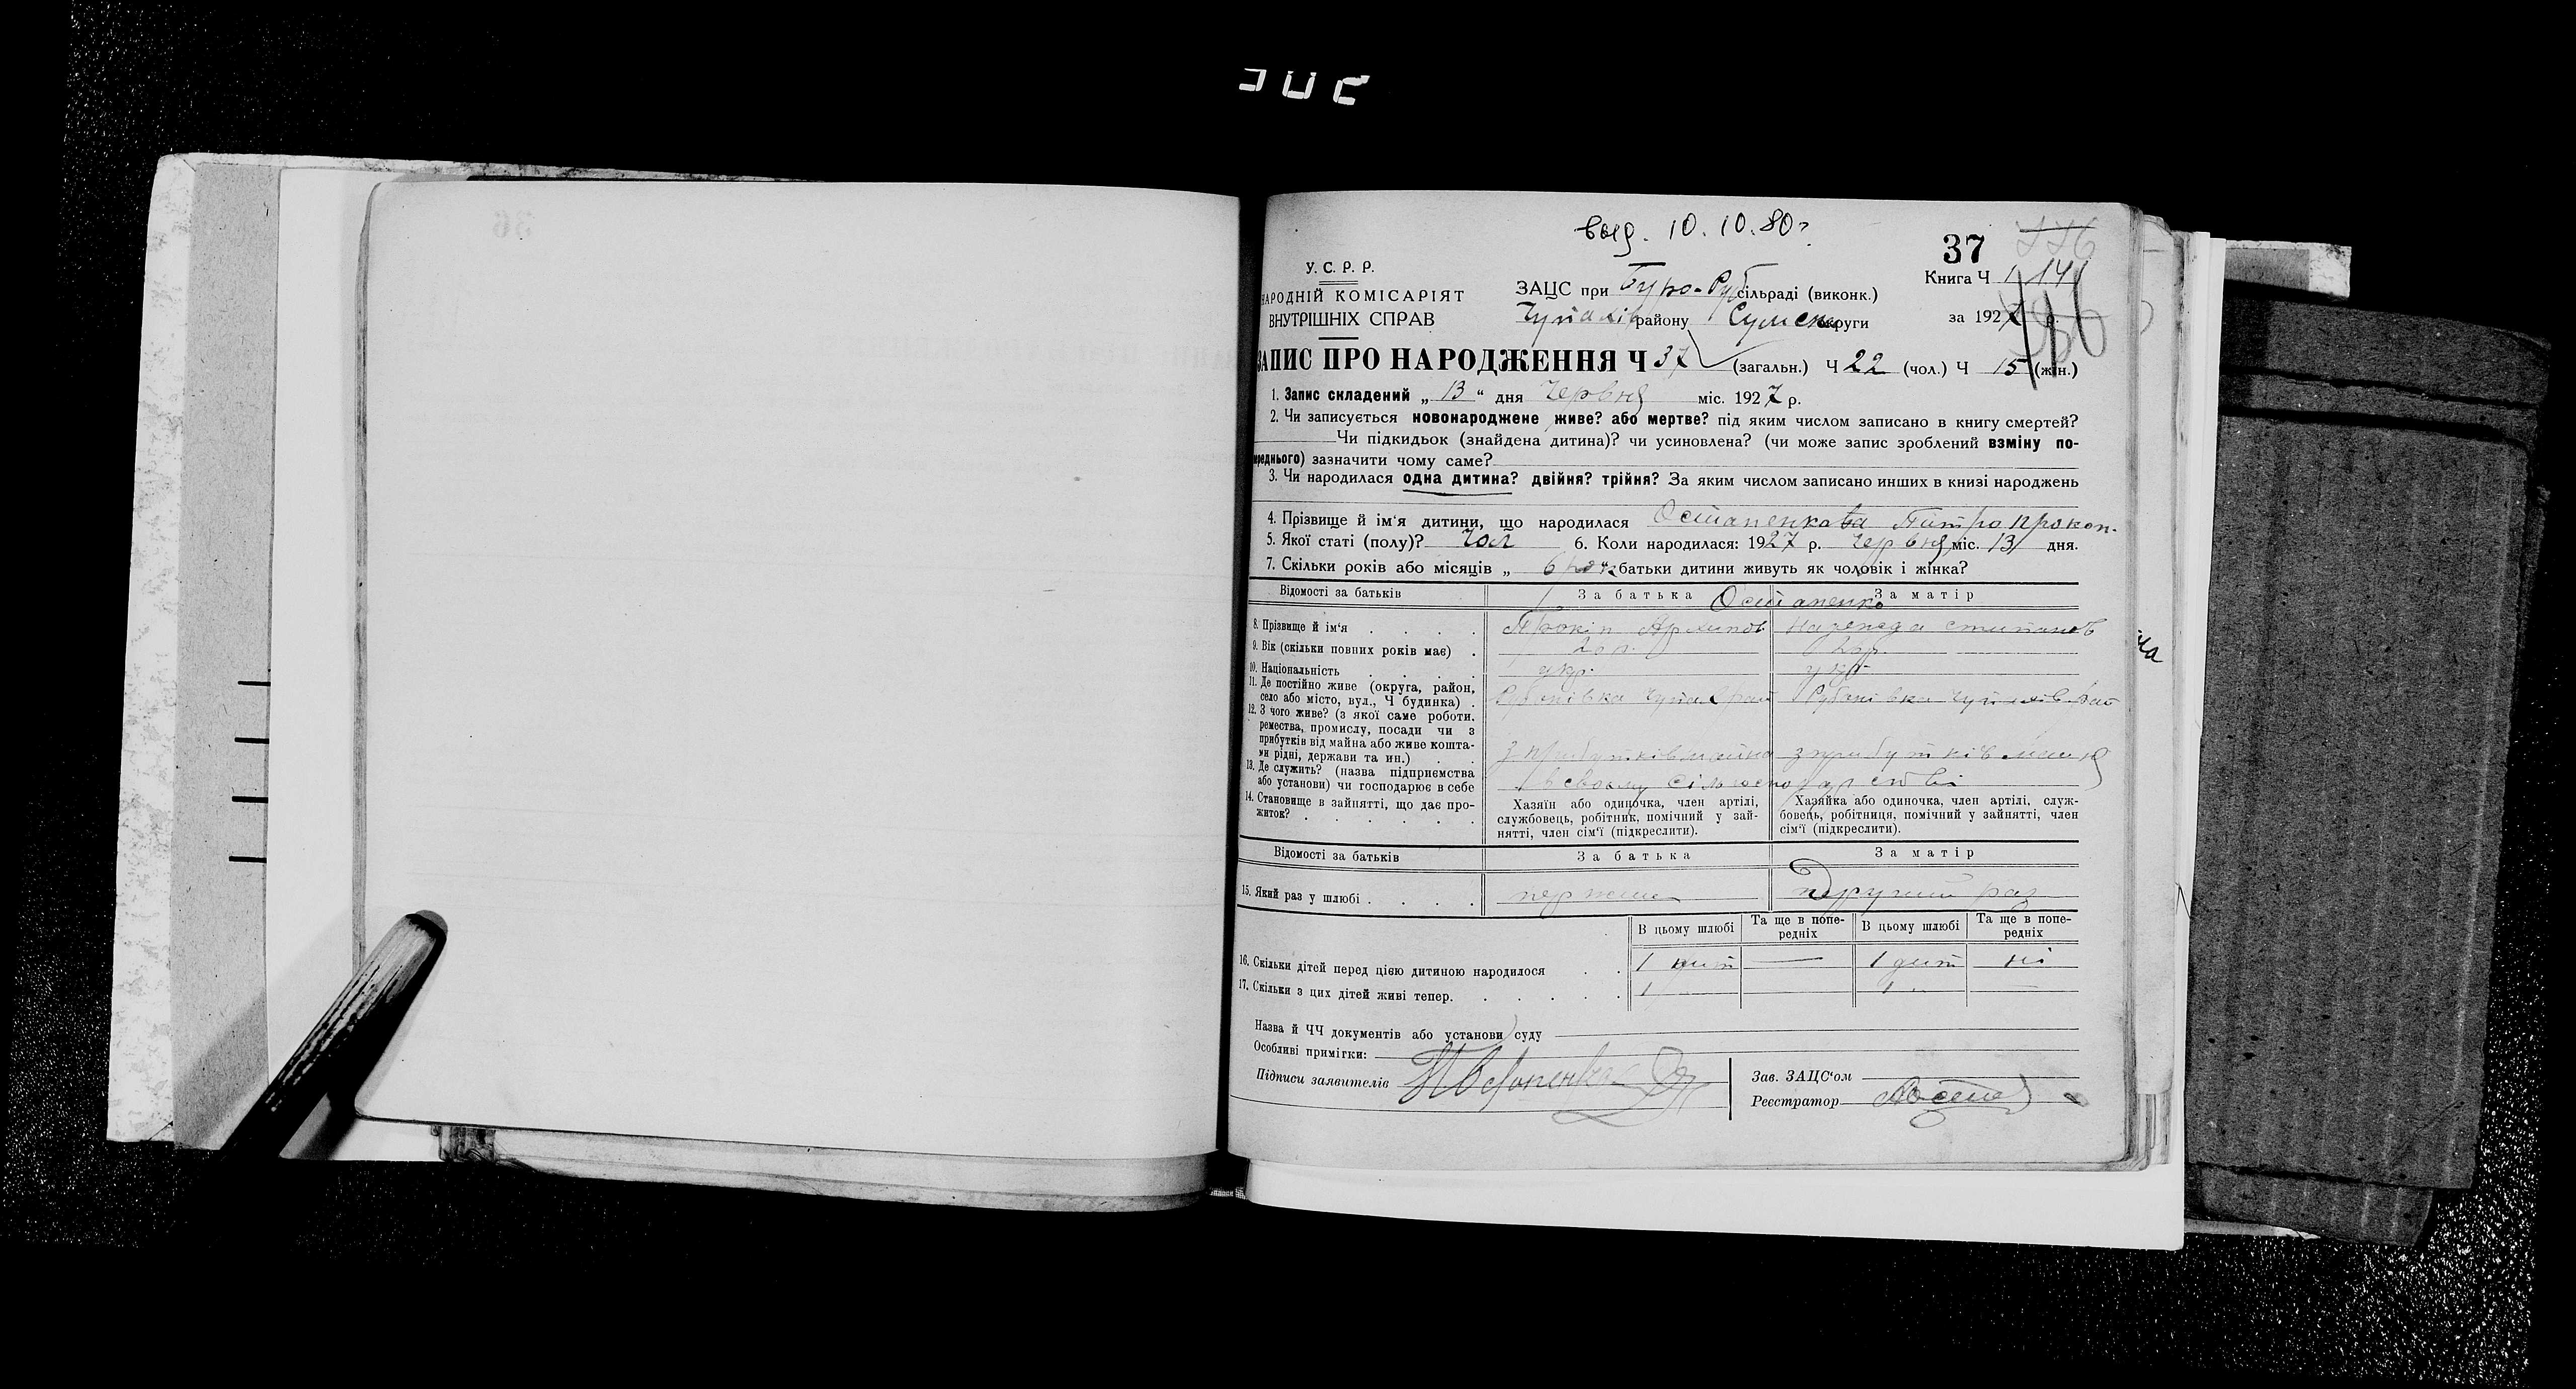 выд. 10.10.80г.
37
У. С. Р. Р.
НАРОДНІЙ КОМІСАРІЯТ
ВНУТРІШНІХ СПРАВ
ЗАЦС при Буро-Руб сільраді (виконк.)
Чупахів району Сумськ округи
Книга Ч 1
за 1927 р.
ЗАПИС ПРО НАРОДЖЕННЯ Ч 37 (загальн.) Ч 22 (чол.) Ч 15 (жін.)
1. Запис складений „ 13 “ дня Червня міс. 1927 р.
2. Чи записується новонароджене живе? або мертве? під яким числом записано в книгу смертей?
Чи підкидьок (знайдена дитина)? чи усиновлена? (чи може запис зроблений взміну по-
переднього) зазначити чому саме?
3. Чи народилася одна дитина? двійня? трійня? За яким числом записано инших в книзі народжень
4. Прізвище й ім‘я дитини, що народилася Остапенкова Пйтро Прокоп.
5. Якої статі (полу)? Чол 6. Коли народилася: 1927 р. Червня міс. 13 дня.
7. Скільки років або місяців „ 6 батьки дитини живуть як чоловік і жінка?
Відомості за батьків За батька За матір
Остапенко
8. Прізвище й ім‘я Прокіп Архипов Надежда стипанов
9. Вік (скільки повних років має) 
10. Національність укр. укр.
11. Де постійно живе (округа, район,
село або місто, вул., Ч будинка) Рубанівка Чупах рай Рубанівка Чупахів рай
12. З чого живе? (з якої саме роботи,
ремества, промислу, посади чи з
прибутків від майна або живе кошта-
ми рідні, держави та ин.) з прибутків майна з прибутків майна
13. Де служить? (назва підприємства
або установи) чи господарює в себе в своьму сільгосподарстві
14. Становище в зайнятті, що дає про-
житок?
Хазяїн або одиночка, член артілі,
службовець, робітник, помічний у зай-
нятті, член сім‘ї (підкреслити).
Хазяйка або одиночка, член артілі, служ-
бовець, робітниця, помічний у зайнятті, член
сім‘ї (підкреслити).
Відомості за батьків За батька За матір
15. Який раз у шлюбі другий раз
В цьому шлюбі Та ще в попе-
редніх В цьому шлюбі Та ще в попе-
редніх
16. Скільки дітей перед цією дитиною народилося 1 дит — 1 дит ні
17. Скільки з цих дітей живі тепер. 1 1 —
Назва й ЧЧ документів або установи суду
Особливі примітки:
Підписи заявителів
Зав. ЗАЦС‘ом
Реєстратор